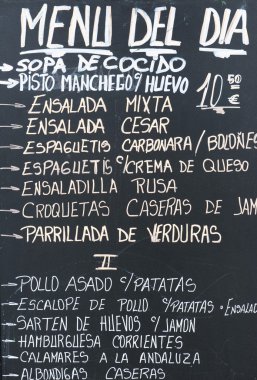 MENU DEL DIA
→ SOPA DE COCIDO
→ PISTO MANCHEGO Y HUEVO
10,50 €
→ ENSALADA MIXTA
→ ENSALADA CESAR
→ ESPAGUETIS CARBONARA / BOLOÑES
→ ESPAGUETIS C/CREMA DE QUESO
→ ENSALADILLA RUSA
→ CROQUETAS CASERAS DE JAM
→ PARRILLADA DE VERDURAS
II
→ POLLO ASADO C/PATATAS
→ ESCALOPE DE POLLO C/PATATAS • ENSALAD
→ SARTEN DE HUEVOS C/ JAMON
→ HAMBURGUESA CORRIENTES
→ CALAMARES A LA ANDALUZA
→ ALBONDIGAS CASERAS